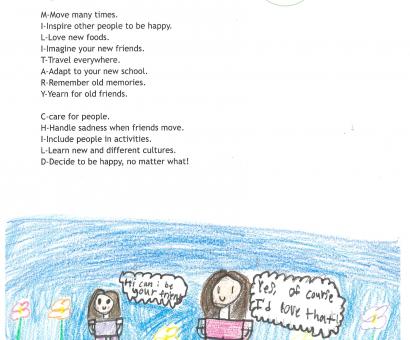 M-Move many times.
I-Inspire other people to be happy.
L-Love new foods.
I-Imagine your new friends.
T-Travel everywhere.
A-Adapt to your new school.
R-Remember old memories.
Y-Yearn for old friends.
C-care for people.
H-Handle sadness when friends move.
I-Include people in activities.
L-Learn new and different cultures.
D-Decide to be happy, no matter what!
Hi can i be
your friend
Yes, of course
I'd love that!